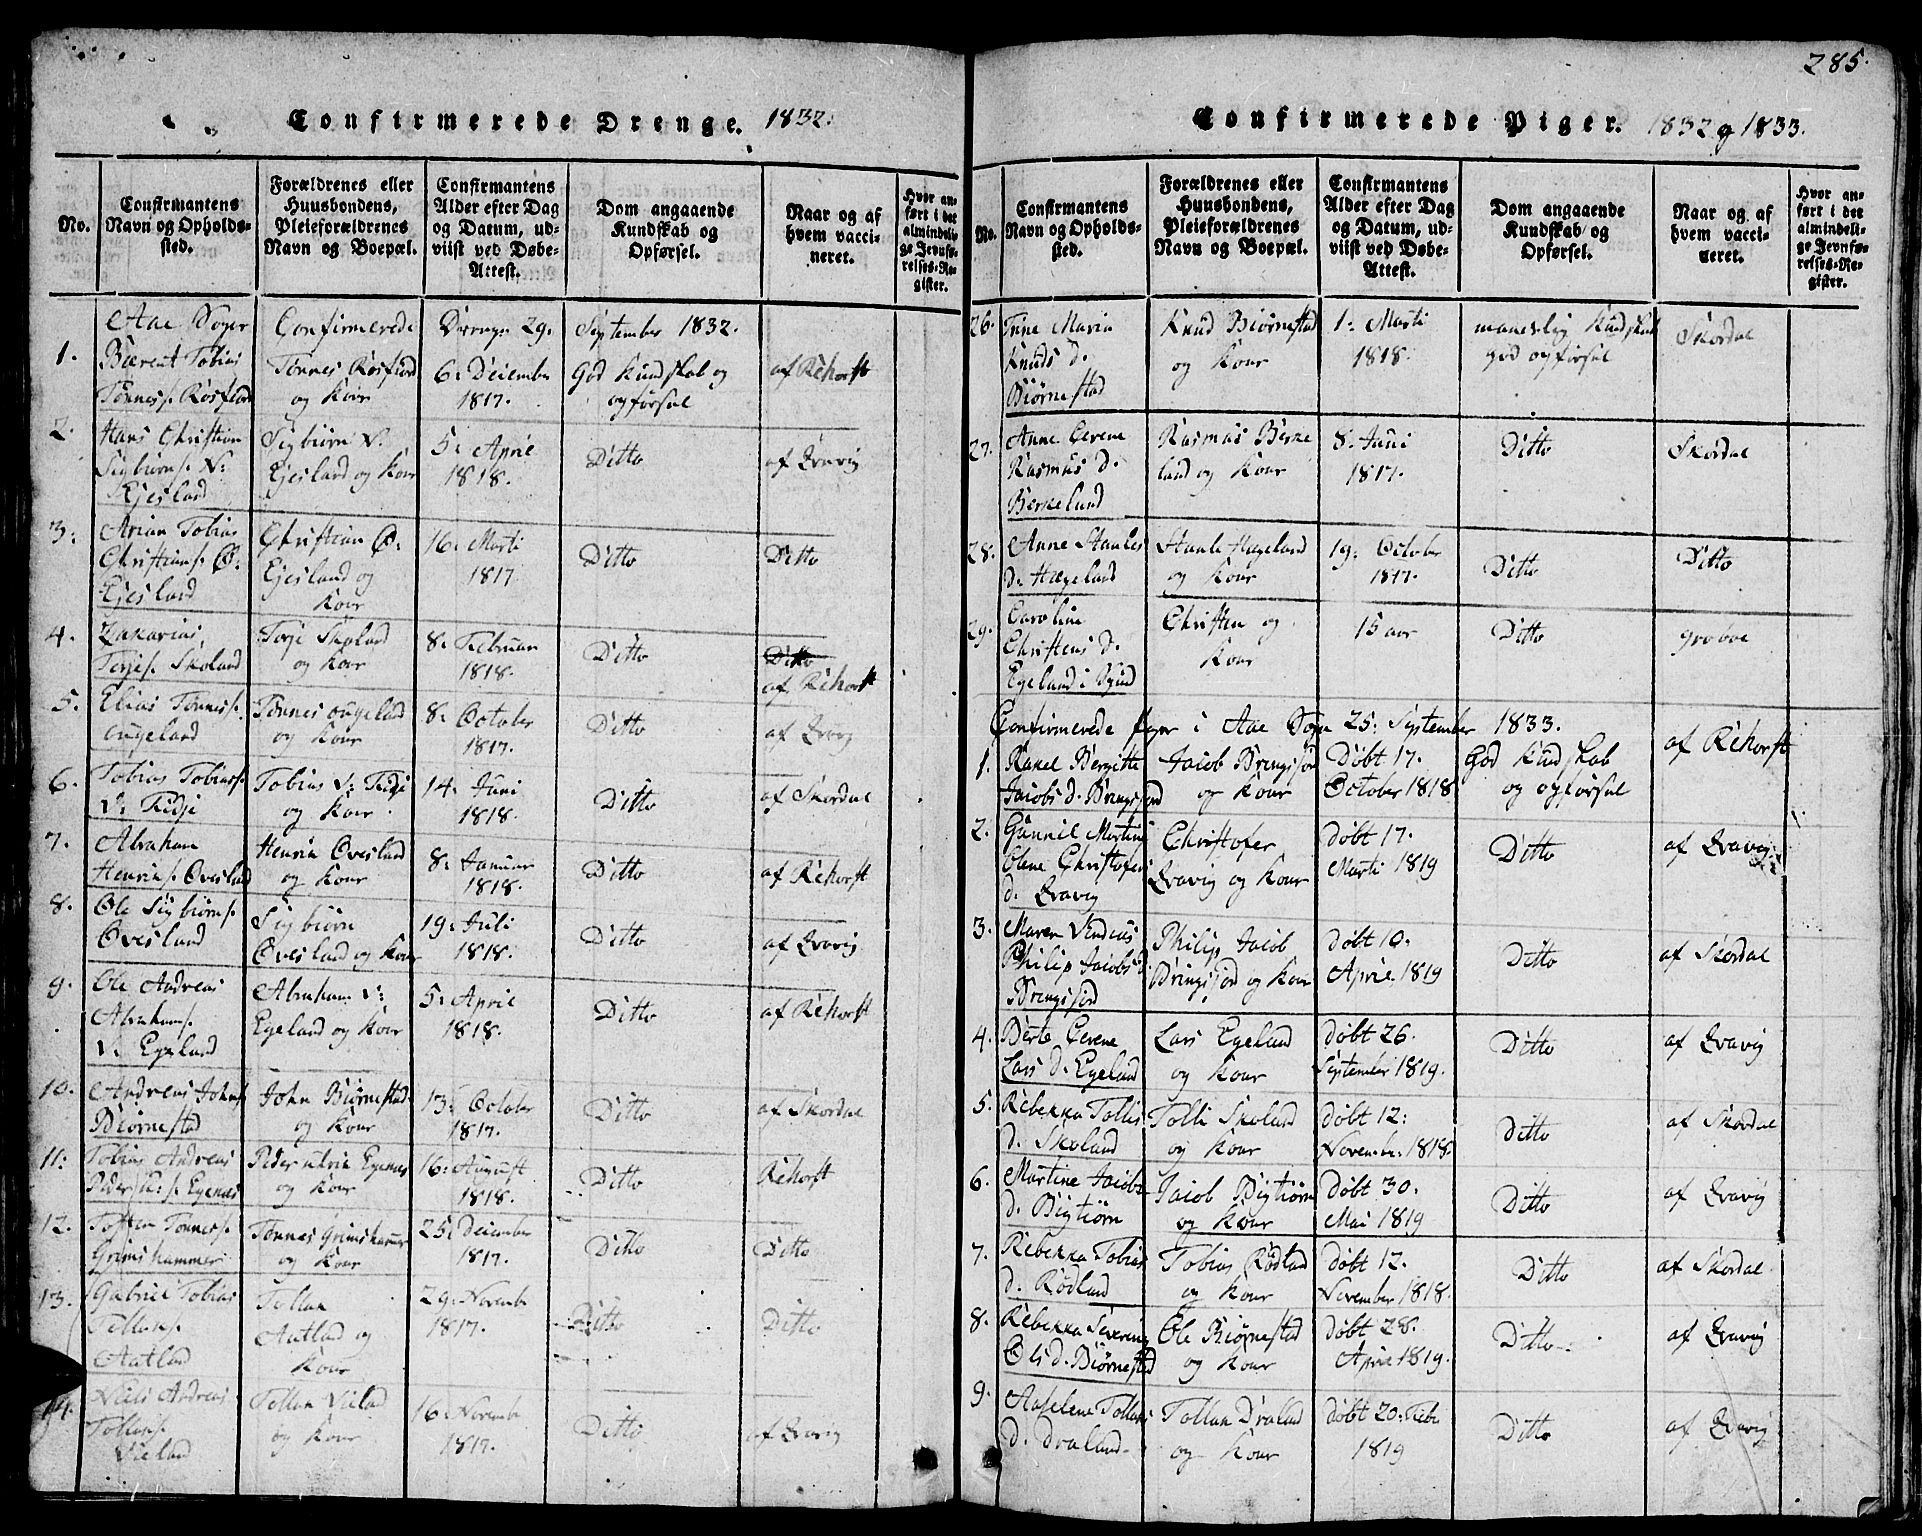 285.
Confirmerede Drenge. 1832.
No.
Confirmantens Navn og Opholds-sted.
Forældrenes eller Huusbondens, Pleieforældrenes Navn og Boepæl.
Confirmantens Alder efter Dag og Datum, ud-viist ved Døbe-Attest.
Dom angaaende Kundskab og Opførsel.
Naar og af hvem vacci-neret.
Hvor an-ført i det almindeli-ge Jevnfø-relses-Re-gister.
Aae Sogn Confirmerede Drenge 29. September 1832.
1. Bærent Tobias Tønnes s. Rosfiord
Tønnes Rosfiord og Kone
6: December 1817.
God Kundskab og opførsel
af Rehorst
2. Hans Christian Sigbiørns. N: Ejesland
Sigbiørn N: Ejesland og Kone
5: April 1818.
Ditto
af Qvavig
3. Arian Tobias Christians. Ø: Ejesland
Christian Ø: Ejesland og Kone
16: Marti 1817
Ditto
Ditto
4. Zakarias Terjes. Skoland
Terje Skoland og Kone
8: Februar 1818.
Ditto
Ditto
af Rehorst
5. Elias Tønness. ougeland
Tønnes ougeland og Kone
8: October 1817.
Ditto
af Qvavig
6. Tobias Tobiass.
Tobias og Kone
14. Juni 1818.
Ditto
af Skordal
7. Abraham Henriks. Øvesland
Henrik Øvesland og Kone
8: Januar 1818.
Ditto
af Rehorst
8. Ole Sigbiørns. Øvesland
Sigbiørn Øvesland og Kone
19: Juli 1818.
Ditto
af Qvavig
9. Ole Andreas Abrahams. N: Egeland
Abraham N: Egeland og Kone
5: April 1818.
Ditto
af Rehorst
10. Andreas Johns. Biørnestad
John Biørnestad og Kone
13: October 1817.
Ditto
af Skordal
11: Tobias Andreas Peder U: s. Egenæs
Peder ulrik Egenæs og Kone
16: August 1818.
Ditto
Rehorst
12. Tosten Tønness. Grimshammer
Tønnes Grimshammer og Kone
25: December 1817.
Ditto
Ditto
13. Gabriel Tobias Tollaks. Aatland
Tollak Aatland og Kone
29: Novemb 1817.
Ditto
Ditto
14. Niels Andreas Tollaks. Vieland
Tollak Vieland og Kone
16: Novemb 1817.
Ditto
af Qvavig
Confirmerede Piger. 1832 og 1833.
No.
Confirmantens Navn og Opholds-sted.
Forældrenes eller Huusbondens, Pleieforældrenes Navn og Boepæl.
Confirmantens Alder efter Dag og Datum, ud-viist ved Døbe-Attest.
Dom angaaende Kundskab og Opførsel.
Naar og af hvem vacci-neret.
Hvor an-ført i det almindeli-ge Jevnfø-relses-Re-gister.
26. Trine Maria Knuds D. Biørnestad
Knud Biørnestad og Kone
1: Marti 1818.
maadelig Kundskab god opførsel
Skordal
27. Anne Serene Rasmus D. Berkeland
Rasmus Berkeland og Kone
8. Juni 1817.
Ditto
Skordal
28. Anne Staales D. Hægeland
Staale Hægeland og Kone
19: October 1817.
Ditto
Ditto
29. Caroline Christens D. Egeland i Spind
Christen og Kone
15 aar
Ditto
Confirmerede Piger i Aae Sogn 25: September 1833.
1. Rakel Bergitte Jacobs D. Bringsiord
Jacob Bringsiord og Kone
Døbt 17. October 1818
God Kundskab og opførsel
af Rehorst
2. Gunnil Martine Olene Christofers D. Qvavig
Christofer Qvavig og Kone
døbt 17. Marti 1819
Ditto
af Qvavig
3. Maren Philip Jacobs D. Bringsiord
Philip Jacob Bringsiord og Kone
døbt 10. April 1819
Ditto
af Skordal
4. Berte Serene Lars D. Egeland
Lars Egeland og Kone
døbt 26. September 1819.
Ditto
af Qvavig
5. Rebekka Tollis D. Skoland
Tolli Skoland og Kone
døbt 12: November 1818.
Ditto
af Skordal
6. Martine Jacobs D. Bigtiørn
Jacob Bigtiørn og Kone
døbt 30. Mai 1819
Ditto
af Qvavig
7. Rebekka Tobias D. Rødland
Tobias Rødland og Kone
døbt 12. November 1818.
Ditto
af Skordal
8. Rebekka Severine Ols D. Biørnestad
Ole Biørnestad og Kone
døbt 28. April 1819.
Ditto
af Qvavig
9. Aaselene Tollaks D. Draland
Tollak Draland og Kone
døbt 20: Feb: 1819
Ditto
af Qvavig